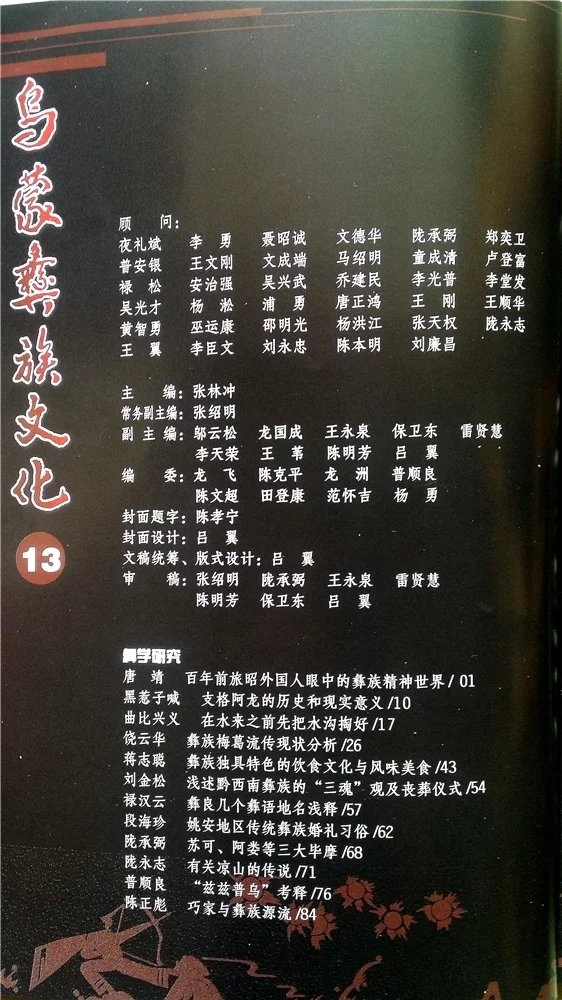 乌蒙彝族文化
13
顾 问：
夜礼斌 李 勇 聂昭诚 文德华 陇承弼 郑奕卫
普安银 王文刚 文成端 马绍明 童成清 卢登富
禄 松 安治强 吴兴武 乔建民 李光普 李堂发
吴光才 杨 淞 浦 勇 唐正鸿 王 刚 王顺华
黄智勇 巫运康 邵明光 杨洪江 张天权 陇永志
王 翼 李臣文 刘永忠 陈本明 刘廉昌
主 编：张林冲
常务副主编：张绍明
副 主 编：邬云松 龙国成 王永泉 保卫东 雷贤慧
李天荣 王 苇 陈明芳 吕 翼
编 委：龙 飞 陈克平 龙 洲 普顺良
陈文超 田登康 范怀吉 杨 勇
封面题字：陈孝宁
封面设计：吕 翼
文稿统筹、版式设计：吕 翼
审 稿：张绍明 陇承弼 王永泉 雷贤慧
陈明芳 保卫东 吕 翼
彝学研究
唐 靖 百年前旅昭外国人眼中的彝族精神世界/01
黑惹子喊 支格阿龙的历史和现实意义/10
曲比兴义 在水来之前先把水沟掏好/17
饶云华 彝族梅葛流传现状分析/26
蒋志聪 彝族独具特色的饮食文化与风味美食/43
刘金松 浅述黔西南彝族的“三魂”观及丧葬仪式/54
禄汉云 彝良几个彝语地名浅释/57
段海珍 姚安地区传统彝族婚礼习俗/62
陇承弼 苏可、阿娄等三大毕摩/68
陇永志 有关凉山的传说/71
普顺良 “兹兹普乌”考释/76
陈正彪 巧家与彝族源流/84